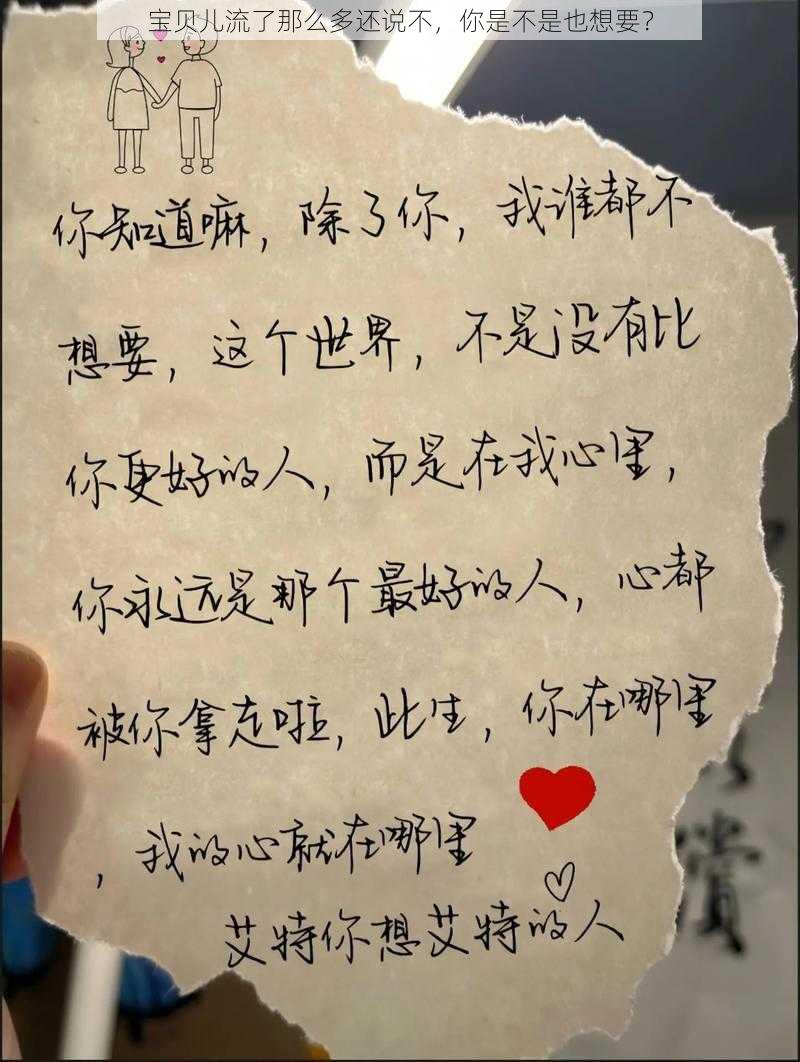 宝贝儿流了那么多还说不，你是不是也想要？
你知道嘛，除了你，我谁都不
想要，这个世界，不是没有比
你更好的人，而是在我心里，
你永远是那个最好的人，心都
被你拿走啦，此生，你在哪里
，我的心就在哪里
艾特你想艾特的人
赏